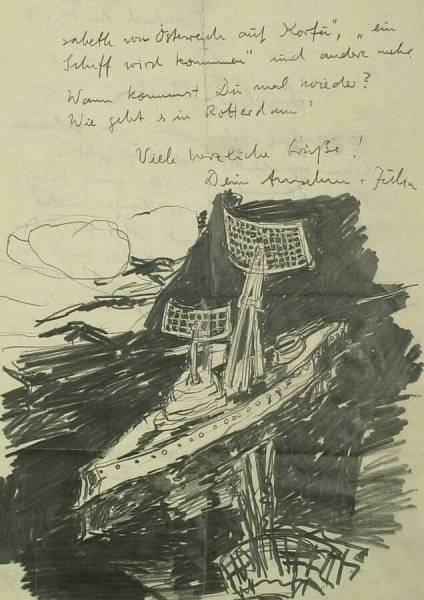 sabeth von Österreich auf Korfu", „ein
Schiff wird kommen" und andere mehr.
Wann kommst Du mal wieder?
Wie geht es in Rotterdam?
Viele herzliche Grüße!
Dein Anselm + Julia